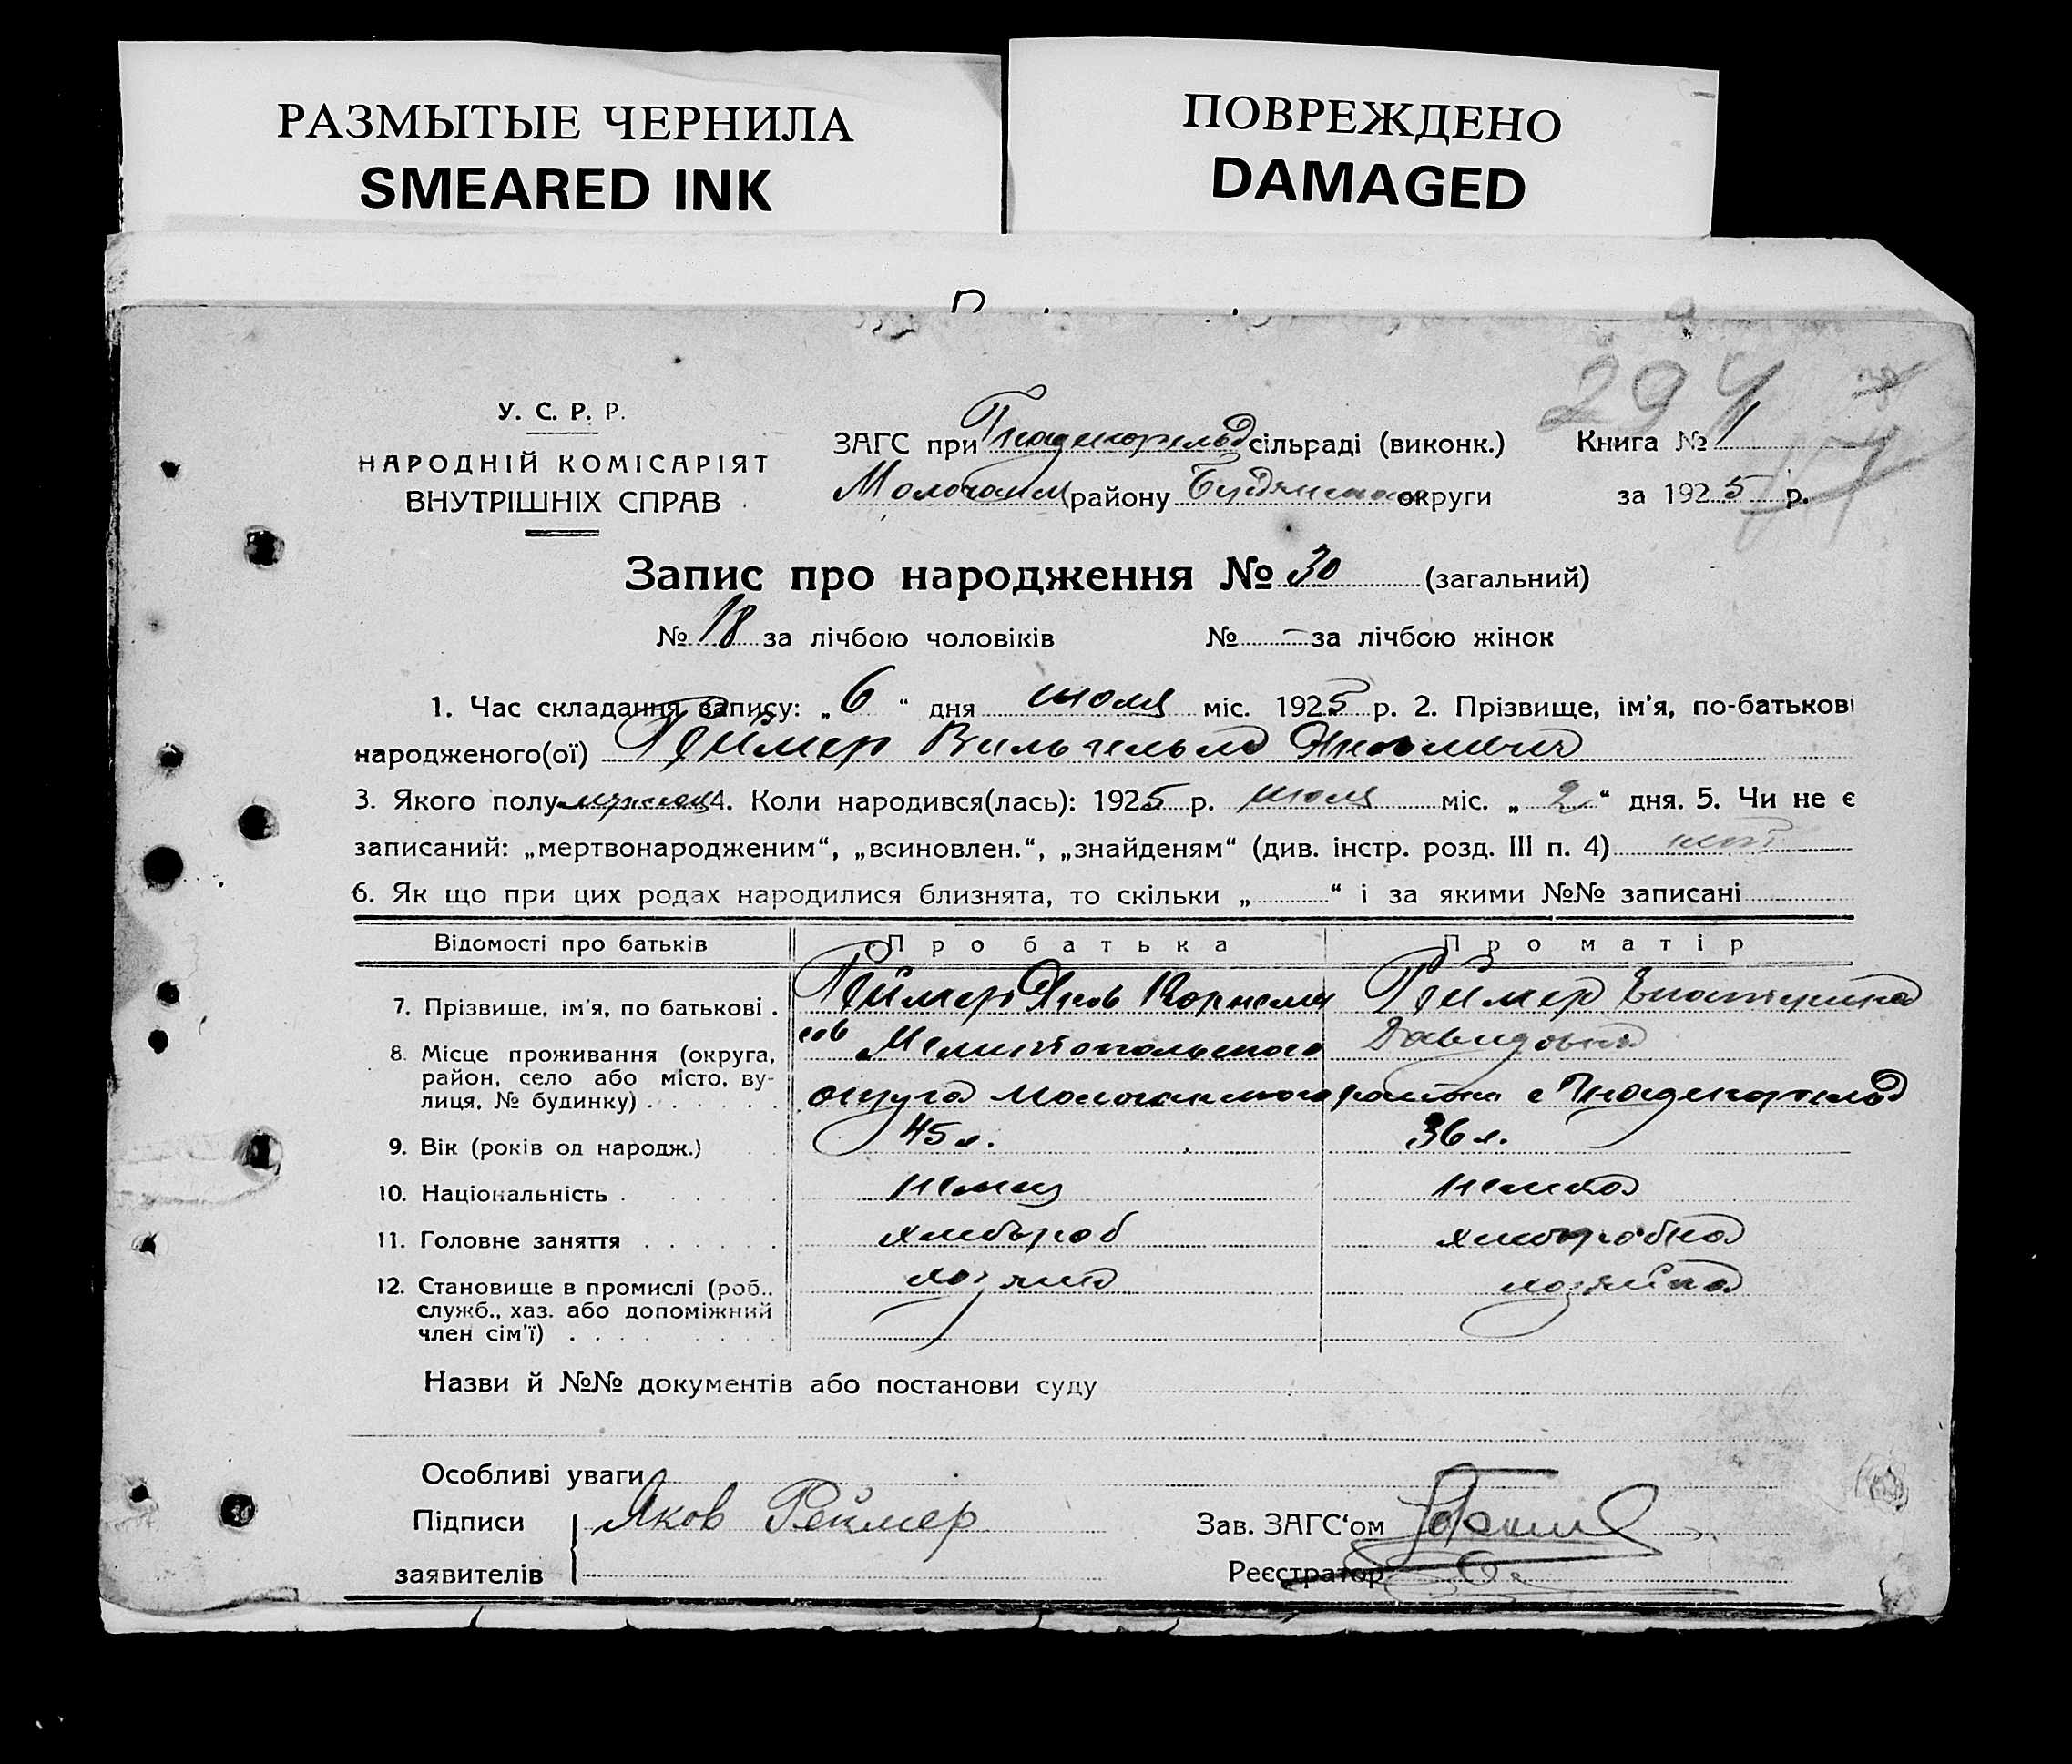 РАЗМЫТЫЕ ЧЕРНИЛА
SMEARED INK
ПОВРЕЖДЕНО
DAMAGED
294
У. С. Р. Р.
НАРОДНІЙ КОМІСАРІЯТ
ВНУТРІШНІХ СПРАВ
ЗАГС при Гнаденфельд сільраді (виконк.) Книга № 1
Молочан району округи за 1925 р.
Запис про народження № 30 (загальний)
№ 18 за лічбою чоловіків № — за лічбою жінок
1. Час складання запису: „6“ дня июля міс. 1925 р. 2. Прізвище, ім'я, по-батькові
народженого(ої) Реймер Вильгельм Яковлевич
3. Якого полу 4. Коли народився(лась): 1925 р. июля міс. „2“ дня. 5. Чи не є
записаний: „мертвонародженим“, „всиновлен.“, „знайденям“ (див. інстр. розд. III п. 4) нет
6. Як що при цих родах народилися близнята, то скільки „ “ і за якими №№ записані
Відомості про батьків Про батька Про матір
7. Прізвище, ім'я, по батькові . Реймер Яков Корнели Реймер Екатерина
ев Мелитопольского Давидовна
8. Місце проживання (округа,
район, село або місто, ву-
лиця, № будинку) . . . . . . округа Молочанского района с Гнаденфельд
9. Вік (років од народж.) 45 л. 36 л.
10. Національність . немец немка
11. Головне заняття . . . . . . хлебороб хлеборобка
12. Становище в промислі (роб., хозяин хозяйка
служб., хаз. або допоміжний
член сім'ї) . . . . . . . . .
Назви й №№ документів або постанови суду
Особливі уваги
Підписи Яков Реймер Зав. ЗАГС‘ом
заявителів Реєстратор